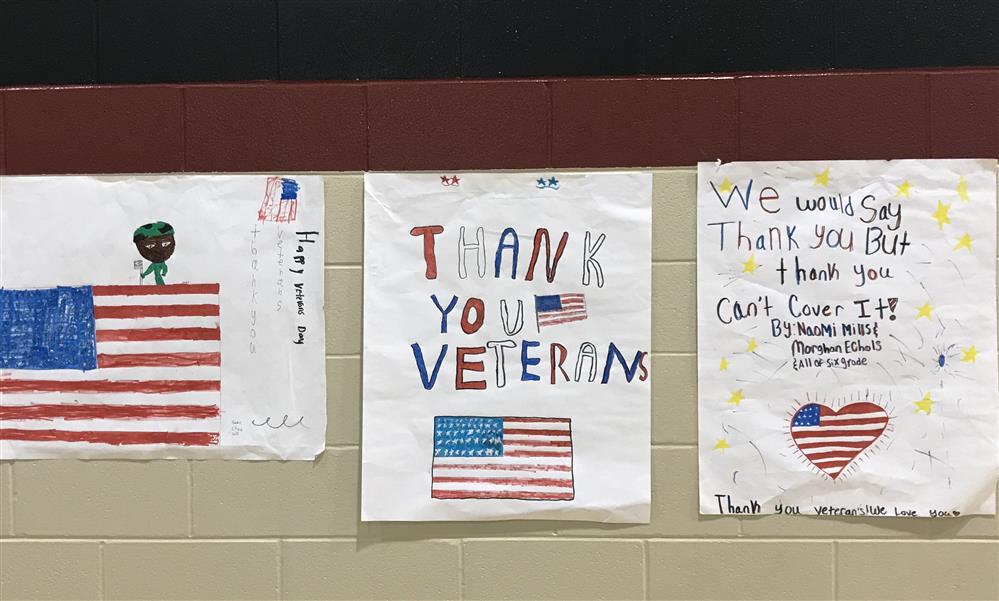 Happy Veterans Day
veterans
thank you
THANK
YOU
VETERANS
We would Say
Thank you But
thank you
Can't Cover It!
By: Naomi Mills &
Morghan Echols
& All of six grade
Thank you veteran's! We Love you